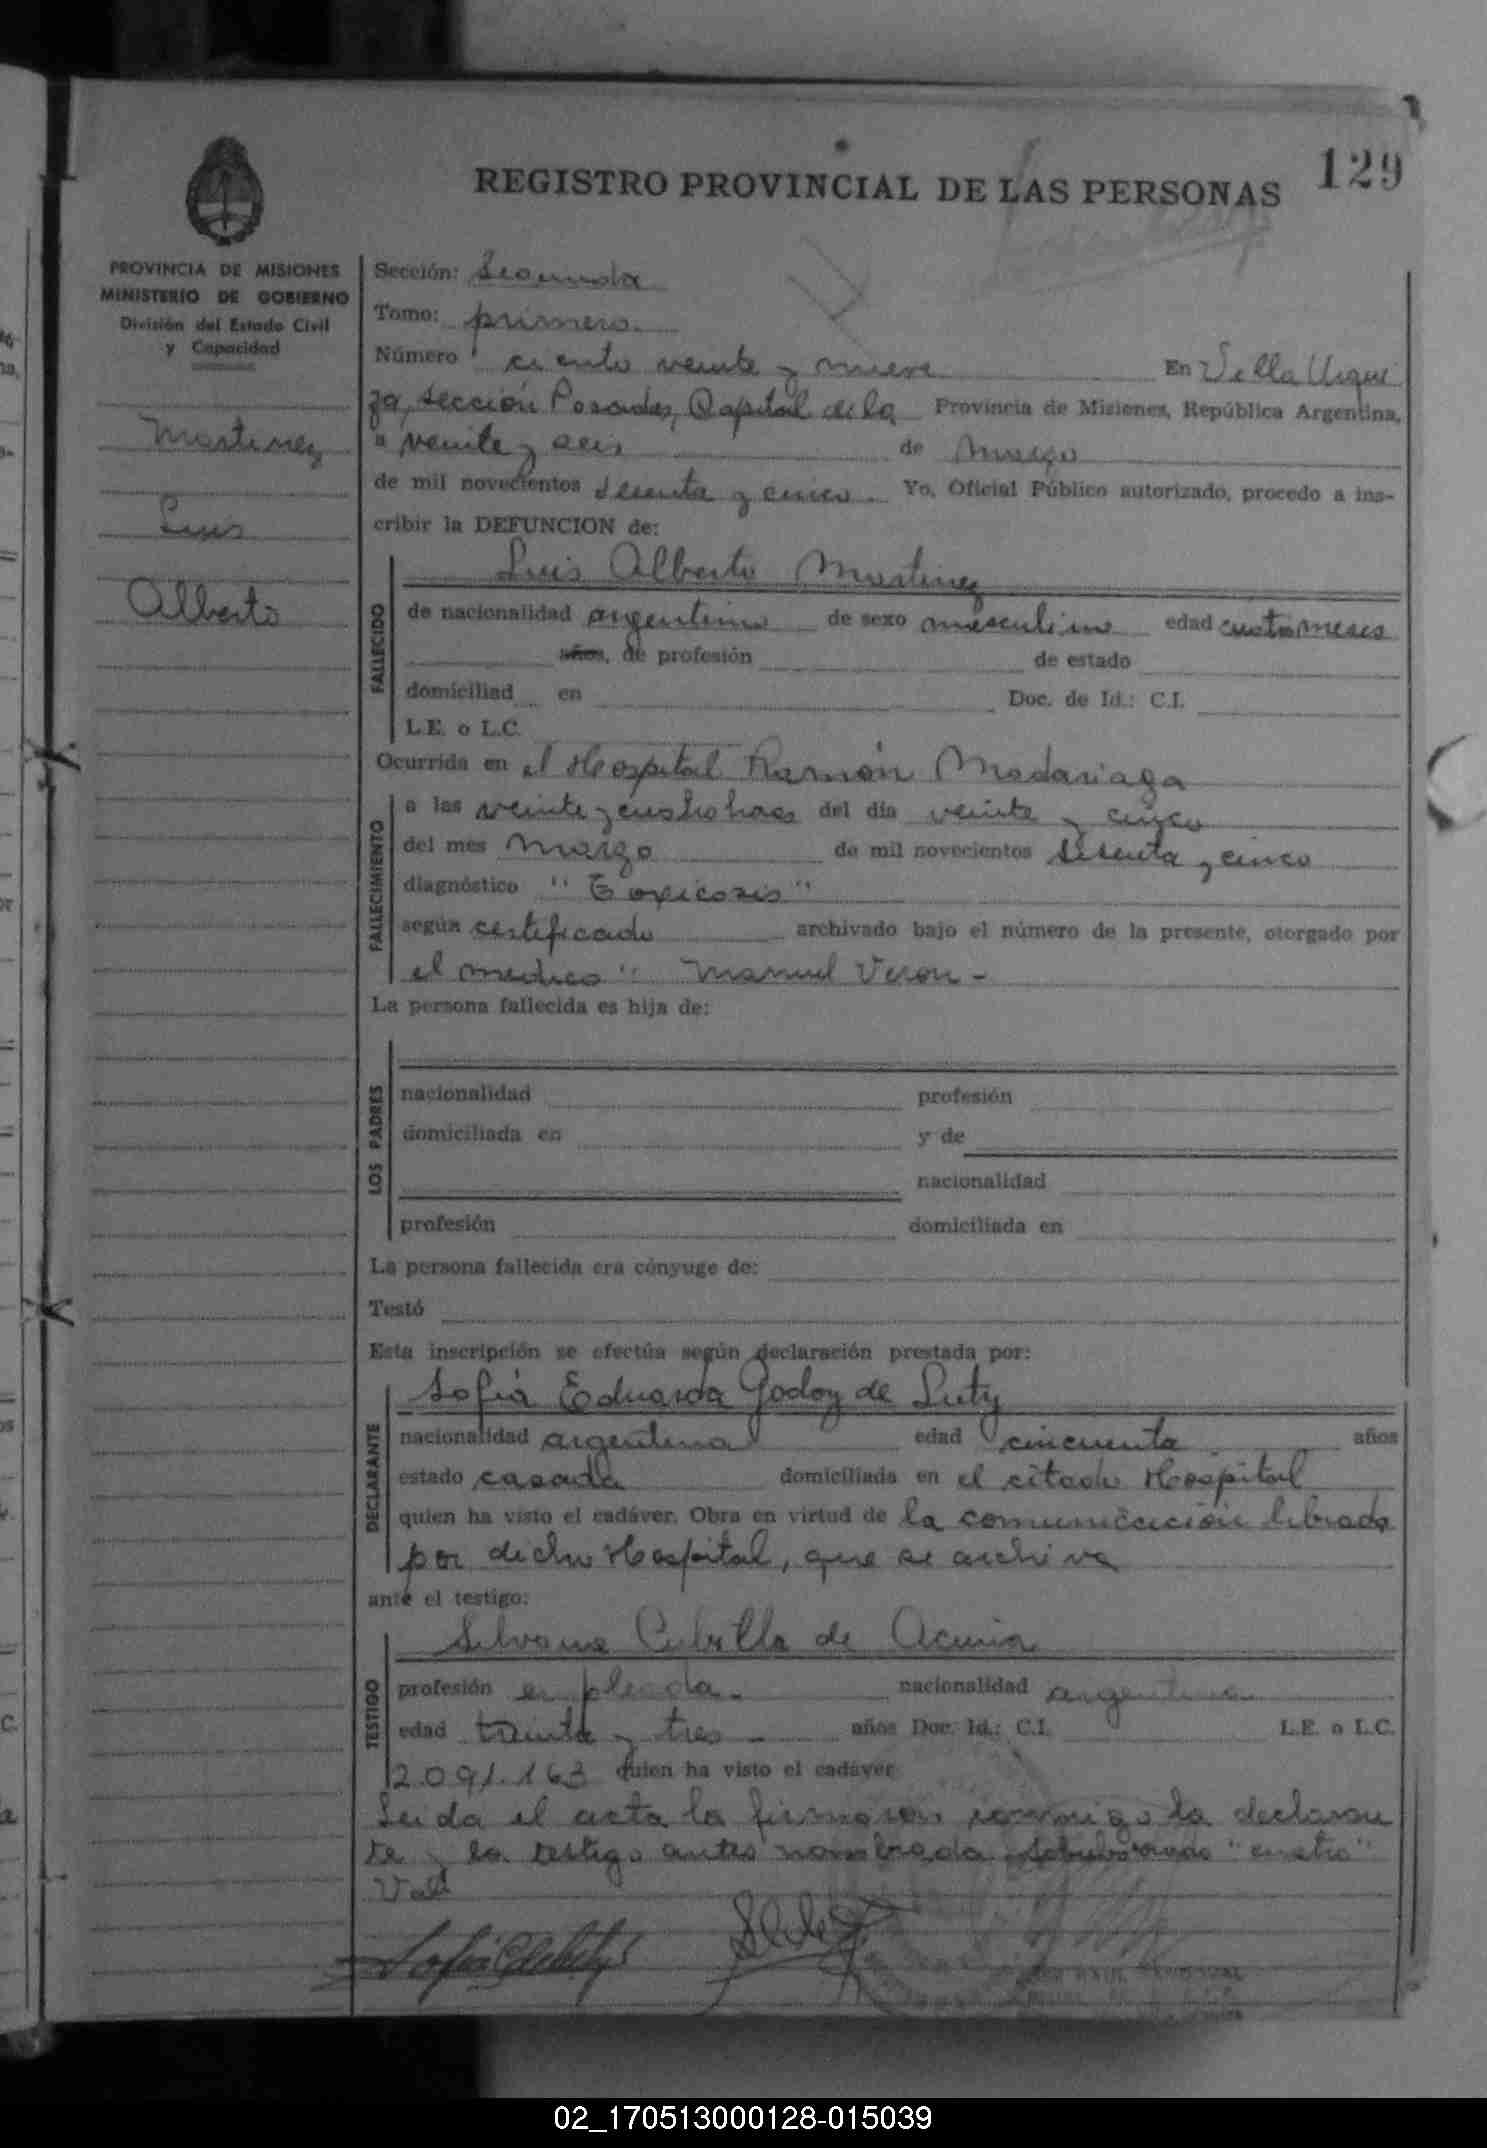 129
REGISTRO PROVINCIAL DE LAS PERSONAS
PROVINCIA DE MISIONES
MINISTERIO DE GOBIERNO
División del Estado Civil
y Capacidad
Martinez
Luis
Alberto
Sección: Segunda
Tomo: primero.
Número ciento veinte y nueve En Villa Urqui
za, sección Posadas, Capital de la Provincia de Misiones, República Argentina,
a veinte y seis de marzo
de mil novecientos sesenta y cinco. Yo, Oficial Público autorizado, procedo a ins-
cribir la DEFUNCION de:
FALLECIDO
Luis Alberto Martinez
de nacionalidad argentino de sexo masculino edad cuatro meses
años, de profesión de estado
domiciliad en Doc. de Id.: C.I.
L.E. o L.C.
Ocurrida en el Hospital Ramón Madariaga
FALLECIMIENTO
a las veinte y cuatro horas del día veinte y cinco
del mes marzo de mil novecientos sesenta y cinco
diagnóstico "Toxicosis"
según certificado archivado bajo el número de la presente, otorgado por
el medico" Manuel Veron -
La persona fallecida es hija de:
LOS PADRES
nacionalidad profesión
domiciliada en y de
nacionalidad
profesión domiciliada en
La persona fallecida era cónyuge de:
Testó
Esta inscripción se efectúa según declaración prestada por:
DECLARANTE
Sofia Eduarda Godoy de Luty
nacionalidad argentina edad cincuenta años
estado casada domiciliada en el citado Hospital
quien ha visto el cadáver. Obra en virtud de la comunicación librada
por dicho Hospital, que se archiva
ante el testigo:
TESTIGO
Silvana Cubilla de Acuña
profesión empleada. nacionalidad argentina
edad treinta y tres - años Doc. Id.: C.I. L.E. o L.C.
2.091.163 quien ha visto el cadáver
Leida el acta la firmaron conmigo la declaran
te y la testigo antes nombrada. Sobreborrado "cuatro"
Vale
02_170513000128-015039